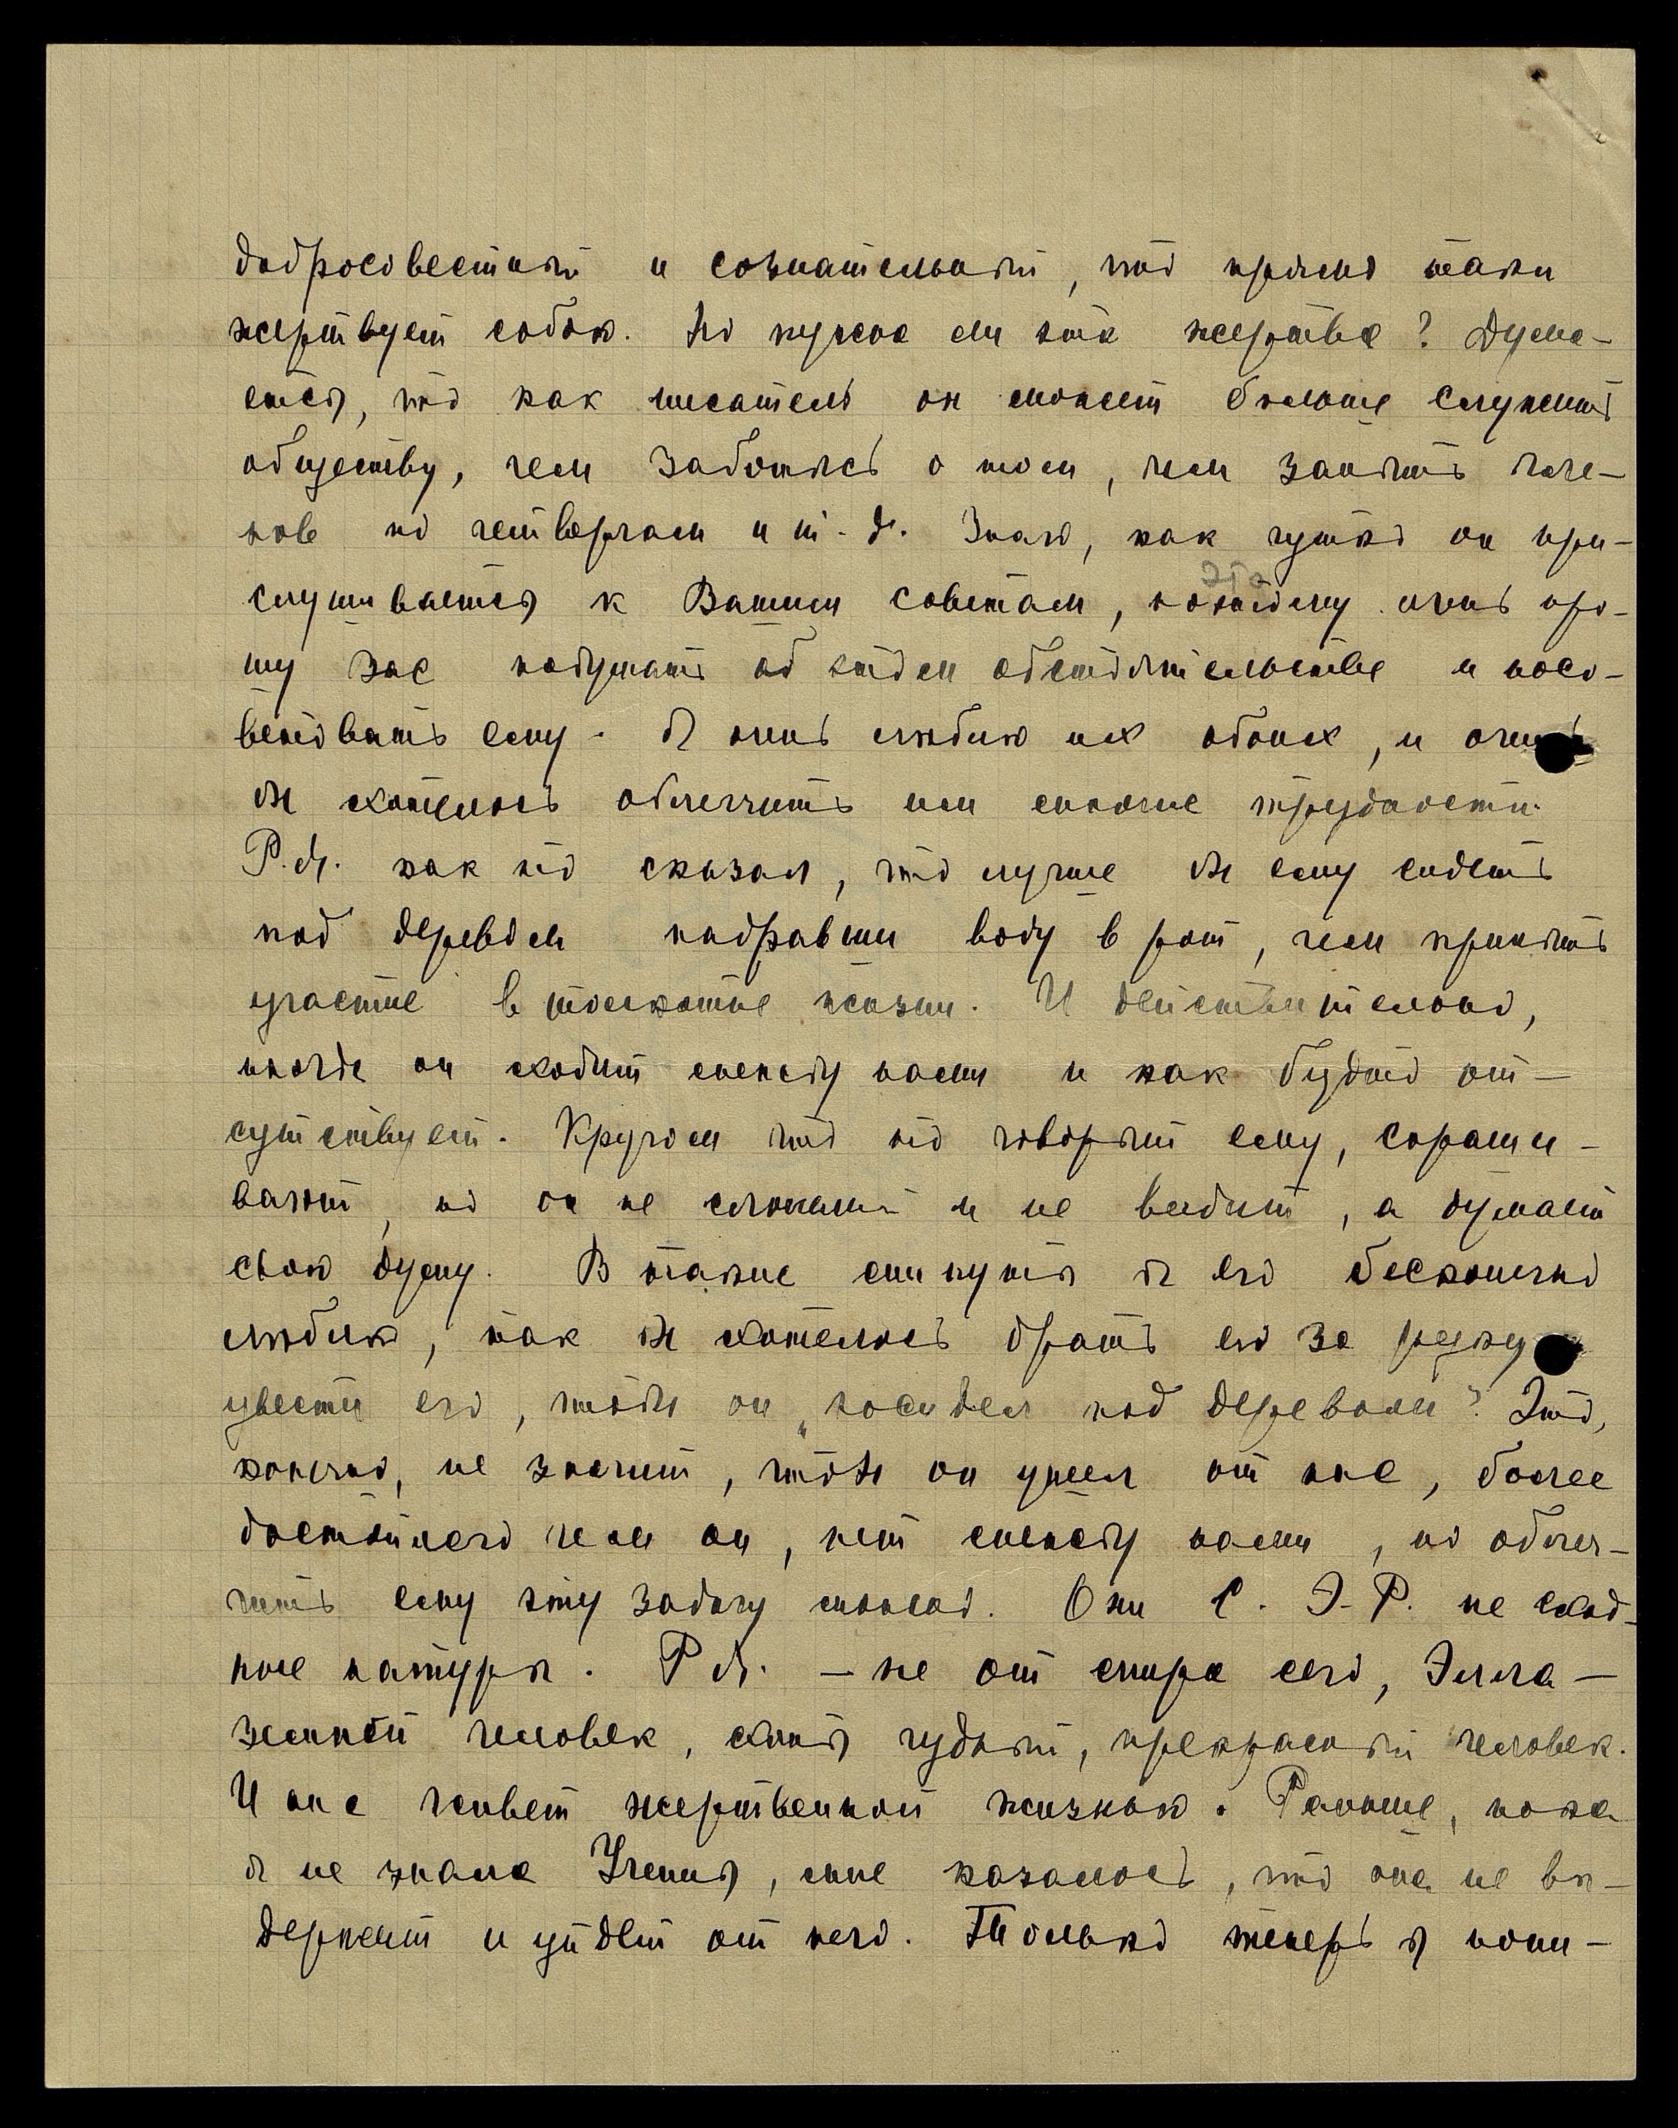 добросовестный и сознательный, что прямо таки
жертвует собою. Но нужна ли эта жертва? Дума-
ется, что как писатель он может больше служить
обществу, чем заботясь о том, чем занять чле-
нов по четвергам и т. д. Знаю, как чутко он при-
слушивается к Вашим советам, поэтому очень про-
шу Вас подумать об этом обстоятельстве и посо-
ветовать ему. Я очень люблю их обоих, и очень
бы хотелось облегчить им многие трудности.
Р.Я. как то сказал, что лучше бы ему сидеть
под деревом набравши воду в рот, чем принять
участие в толкотне жизни. И действительно,
иногда он ходит между нами и как будто от-
сутствует. Кругом что то говорят ему, спраши-
вают, но он не слышит и не видит, а думает
свою думу. В такие минуты я его бесконечно
люблю, так бы хотелось брать его за руку
увести его, чтобы он „посидел под деревом". Это,
конечно, не значит, чтобы он ушел от нас, более
достойнего чем он, нет между нами, но облег-
чить ему эту задачу можно. Они с Э.Р. не сход-
ные натуры. Р Я. — не от мира сего, Элла —
земной человек, хотя чудный, прекрасный человек.
И она живет жертвенной жизнью. Раньше, пока
я не знала Учения, мне казалось, что она не вы-
держит и уйдет от него. Только теперь я пони-